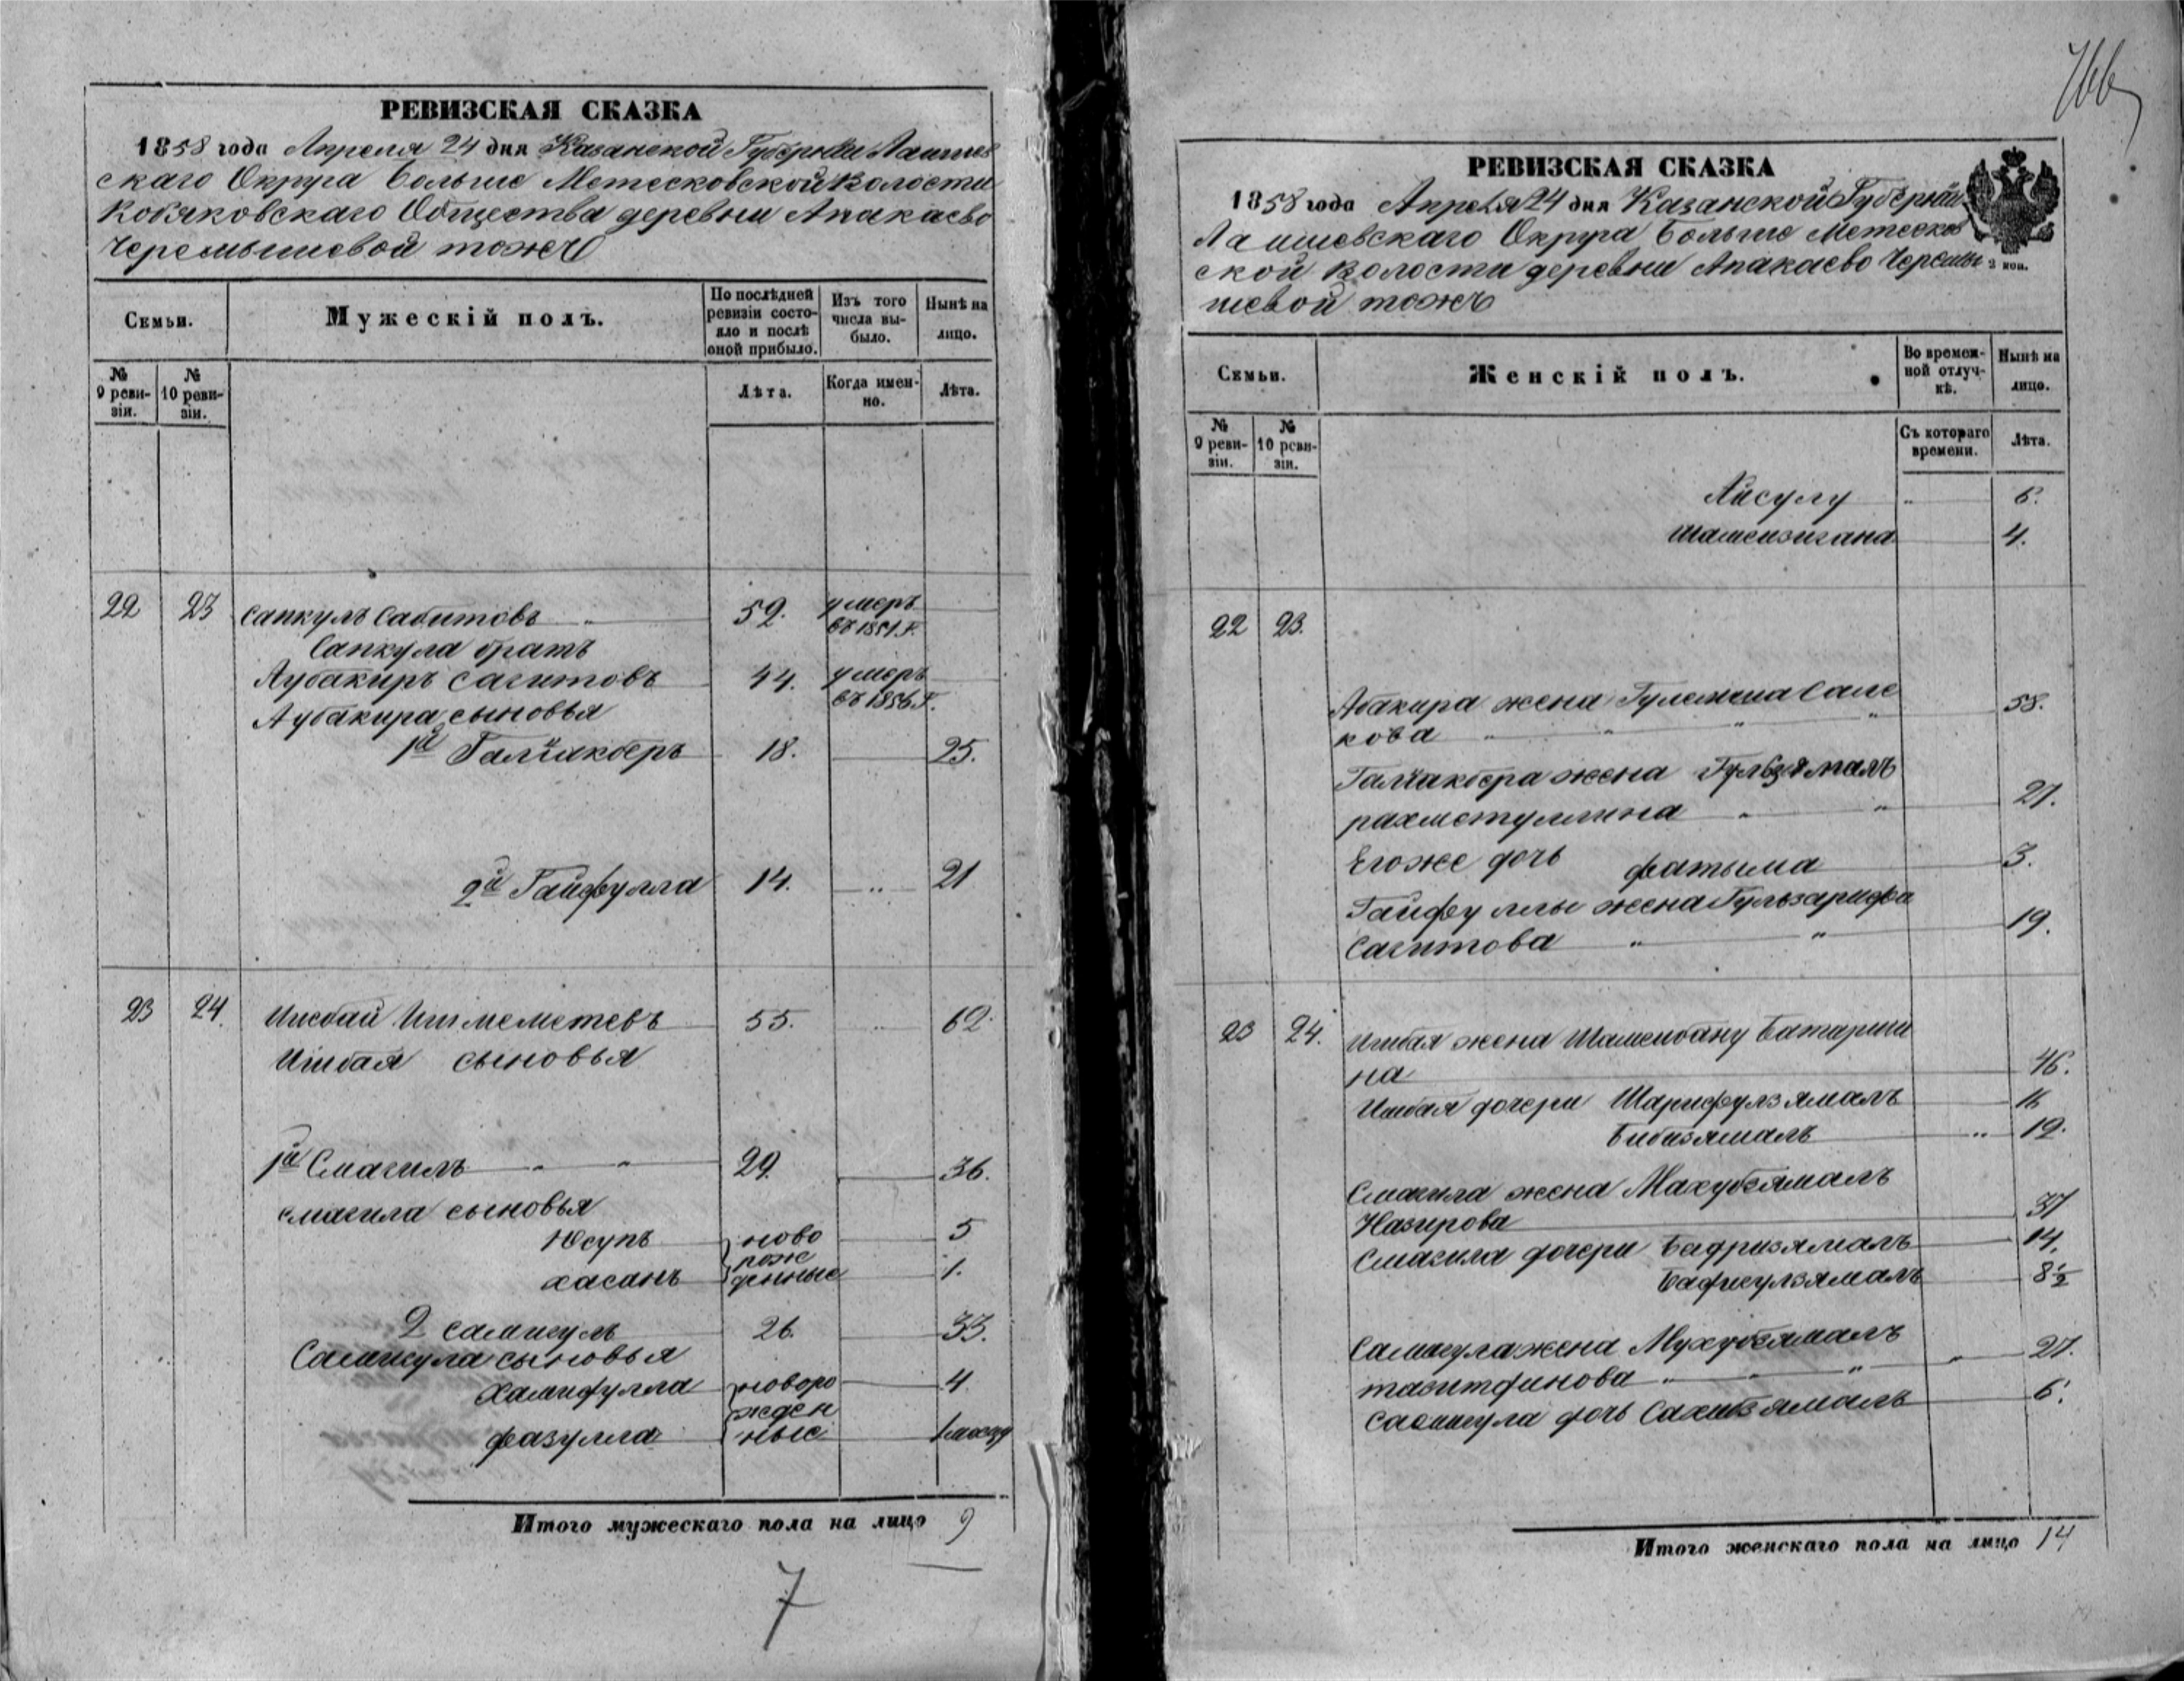 РЕВИЗСКАЯ СКАЗКА
1858 года Апреля 24 дня Казанской Губернии Лаишев
скаго Округа Больше Метесковской Волости
Кобяковскаго Общества деревни Апакаево
Черемышевой тожъ
Семьи.
Мужескій полъ.
По послѣдней ревизіи состо-
яло и послѣ
оной прибыло.
Изъ того
числа вы-
было.
Нынѣ на
лицо.
№
9 реви-
зіи.
№
10 реви-
зіи.
Лѣта.
Когда имен-
но.
Лѣта.
22 23 Сапкулъ Сабитовъ 52. умеръ
въ 1851.г.
Сапкула братъ
Аубакиръ Сагитовъ 44. умеръ
въ 1856.г.
Аубакира сыновья
1й Галiакберъ 18. 25.
2й Гайфулла 14. 21
23 24. Ишбай Ишмеметевъ 55. 62.
Ишбая сыновья
1й Смагилъ 29. 36.
Смагила сыновья
Юсупъ ново 5
рож
хасанъ денные 1.
2 Самигулъ 26. 33.
Самигула сыновья
Хамифулла новоро 4.
жден
фазулла ные
Итого мужескаго пола на лицо 9
7
РЕВИЗСКАЯ СКАЗКА
1858 года Апреля 24 дня Казанской Губернии
Лаишевскаго Округа Больше Метесков
ской Волости деревни Апакаево Черемы
шевой тожъ
2 коп.
Семьи.
Женскій полъ.
Во времен-
ной отлуч-
кѣ.
Нынѣ на
лицо.
№
9 реви-
зіи.
№
10 реви-
зіи.
Съ котораго
времени.
Лѣта.
Айсулу 6.
4.
22 23.
Абакира жена Сале
кова 58.
Галiакбера жена Гульзямалъ
рахметуллина 27.
Егоже дочь фатыма 3.
Гайфуллы жена Гульзарифа
Сагитова 19.
23 24. Ишбая жена Шамсибану Батарши
на 46.
Ишбая дочери Шарифулзямалъ 16
Бибизямалъ 12.
Смагила жена Махубзямалъ
Назирова 37
Смагила дочери Бадризямалъ 14.
8 1/2
Самигула жена Мухубзямалъ
тазитдинова 27.
Самигула дочь Сахибзямалъ 6.
Итого женскаго пола на лицо 14